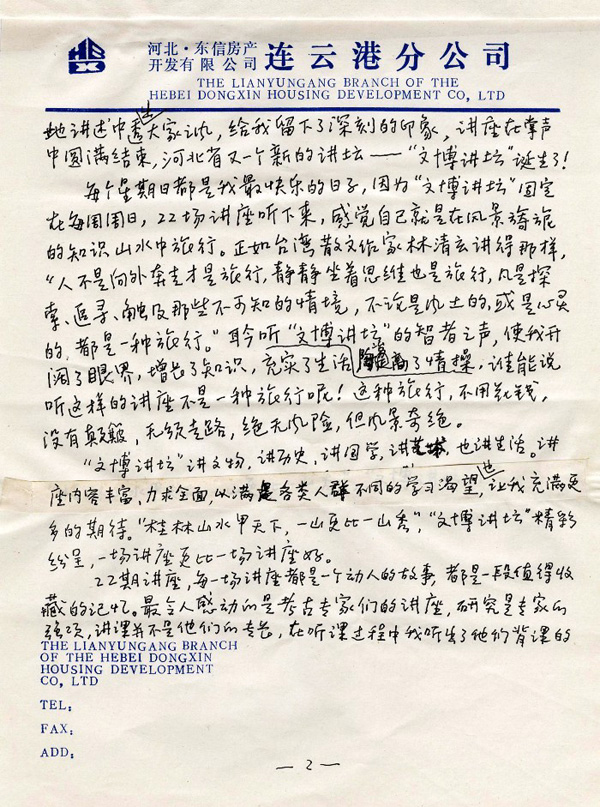 河北·东信房产
开发有限公司 连云港分公司
THE LIANYUNGANG BRANCH OF THE
HEBEI DONGXIN HOUSING DEVELOPMENT CO, LTD
她讲述中也透大家风，给我留下了深刻的印象，讲座在掌声
中圆满结束，河北省又一个新的讲坛——“文博讲坛”诞生了！
每个星期日都是我最快乐的日子，因为“文博讲坛”固定
在每周周日，22场讲座听下来，感觉自己就是在风景旖旎
的知识山水中旅行。正如台湾散文作家林清玄讲得那样，
“人不是向外奔走才是旅行，静静坐着思维也是旅行，凡是探
索、追寻、触及那些不可知的情境，不论是风土的，或是心灵
的，都是一种旅行。”聆听“文博讲坛”的智者之声，使我开
阔了眼界，增长了知识，充实了生活，陶高了情操，谁能说
听这样的讲座不是一种旅行呢！这种旅行，不用花钱，
没有颠簸，无须走路，绝无风险，但风景奇绝。
“文博讲坛”讲文物，讲历史，讲国学，讲艺术，也讲生活。讲
座内容丰富、力求全面，以满足各类人群不同的学习渴望，也让我充满更
多的期待。“桂林山水甲天下，一山更比一山秀”，“文博讲坛”精彩
纷呈，一场讲座更比一场讲座好。
22期讲座，每一场讲座都是一个动人的故事，都是一段值得收
藏的记忆。最令人感动的是考古专家们的讲座，研究是专家的
强项，讲课并不是他们的专长，在听课过程中我听出了他们背课的
THE LIANYUNGANG BRANCH
OF THE HEBEI DONGXIN
HOUSING DEVELOPMENT
CO, LTD
TEL:
FAX:
ADD:
— 2 —